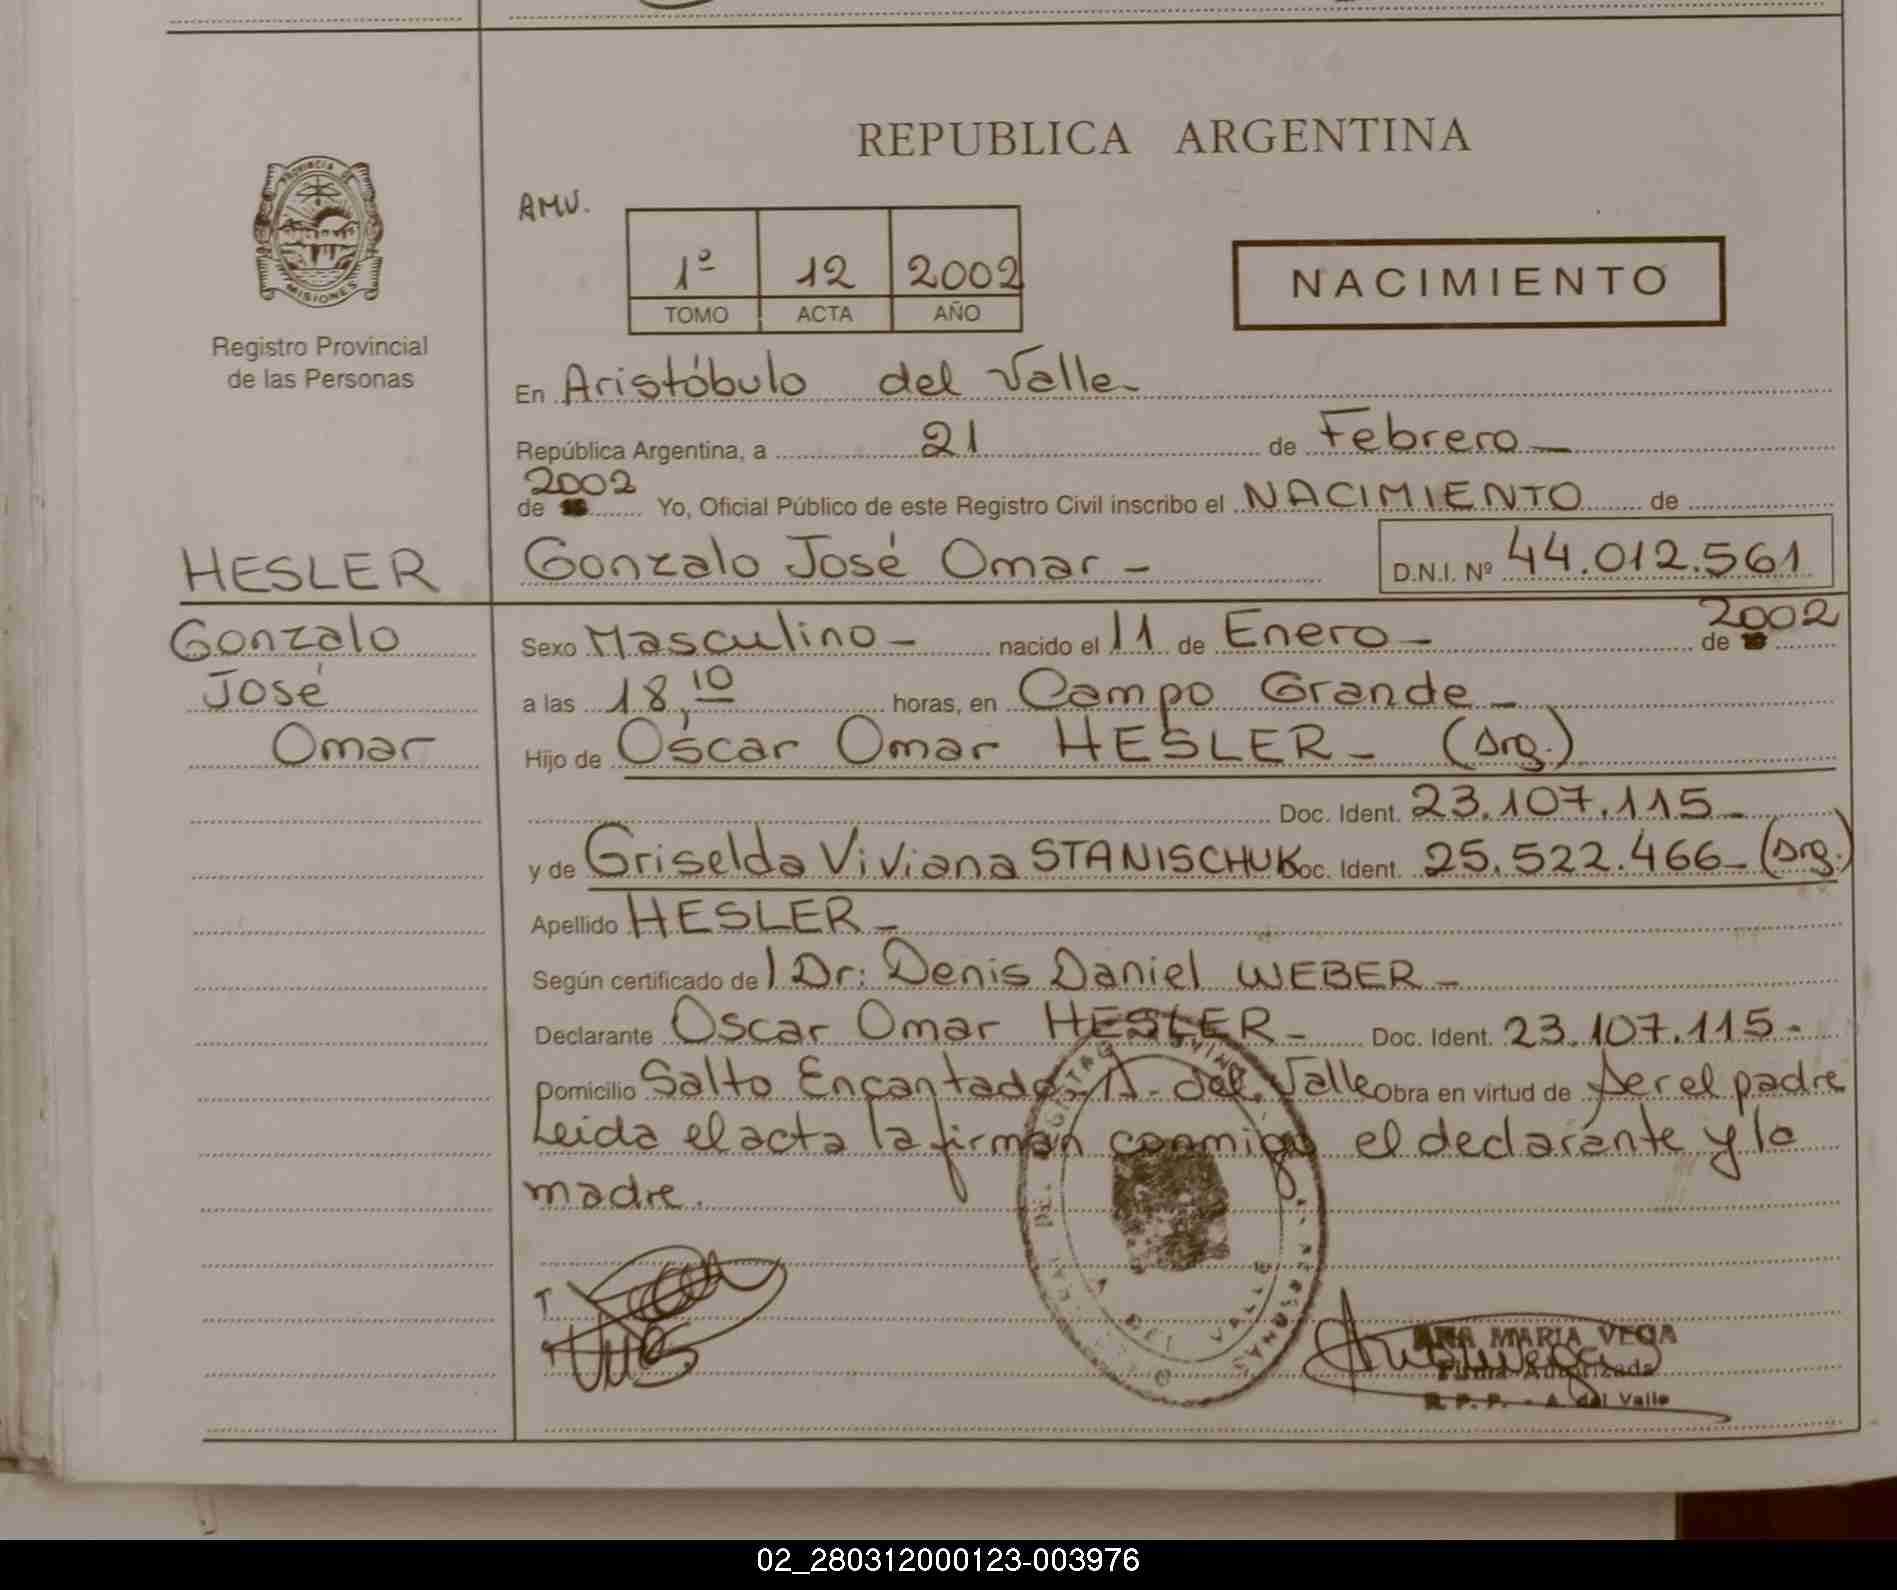 REPUBLICA ARGENTINA
PROVINCIA DE
MISIONES
Registro Provincial
de las Personas
AMV.
1º 12 2002
TOMO ACTA AÑO
NACIMIENTO
En Aristóbulo del Valle-
República Argentina, a 21 de Febrero-
2002
de Yo, Oficial Público de este Registro Civil inscribo el NACIMIENTO de
HESLER
Gonzalo José Omar - D.N.I. Nº 44.012.561
Gonzalo
José
Omar
Sexo Masculino - nacido el 11 de Enero - de 2002
a las 18,10 horas, en Campo Grande -
Hijo de Oscar Omar HESLER - (Arg.)
Doc. Ident. 23.107.115-
y de Griselda Viviana STANISCHUK Doc. Ident. 25.522.466- (Arg.)
Apellido HESLER -
Según certificado de l Dr: Denis Daniel WEBER -
Declarante Oscar Omar HESLER - Doc. Ident. 23.107.115-
Domicilio Salto Encantado. A. del Valle Obra en virtud de ser el padre
Leida el acta la firman conmigo el declarante y la
madre.
DEL VALLE
ANA MARIA VEGA
Firma Autorizada
R. P. P. - A. del Valle
02_280312000123-003976